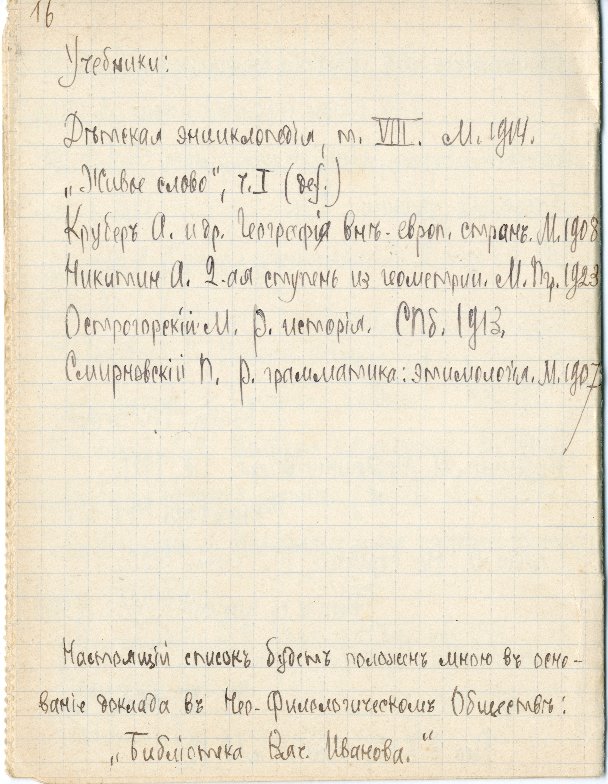 16
Учебники:
Дѣтская энциклопедія, т. VIII. М. 1914.
„Живое слово“, ч. I (def.)
Круберъ А. и др. Географія внѣ-европ. странъ. М. 1908
Никитин А. 2-ая ступень из геометрии. М. Пг. 1923
Острогорскій М. Р. исторія. СПб. 1913,
Смирновскій П. Р. грамматика: этимологія. М. 1907
Настоящій списокъ будетъ положенъ мною въ осно-
ваніе доклада въ Нео-Филологическомъ Обществѣ:
„Библіотека Вяч. Иванова.“